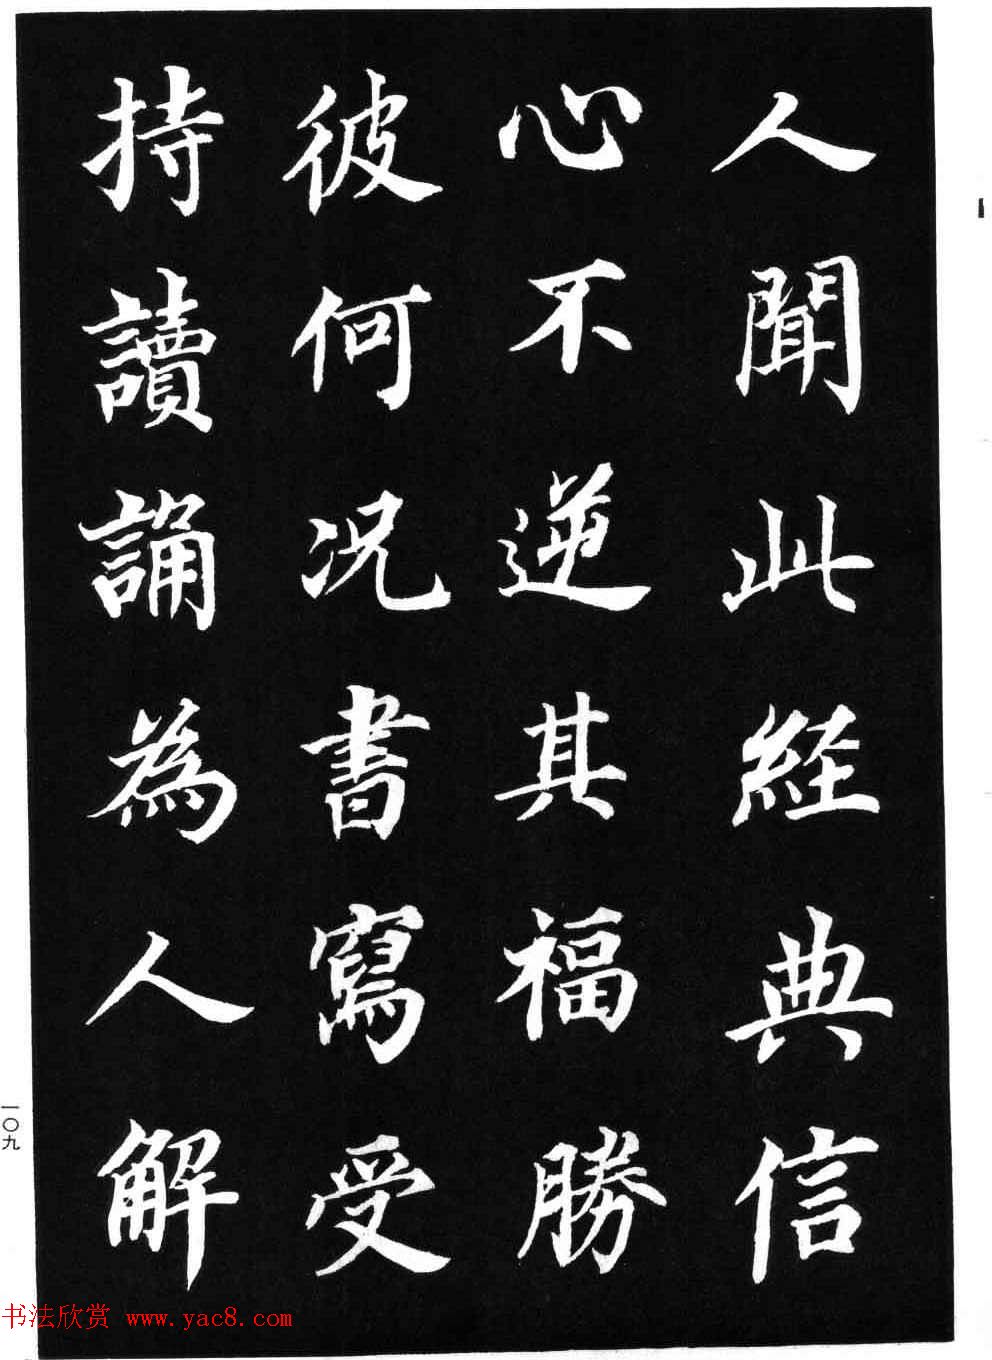 人聞此經典信
心不逆其福勝
彼何況書寫受
持讀誦為人解
一〇九
书法欣赏 www.yac8.com